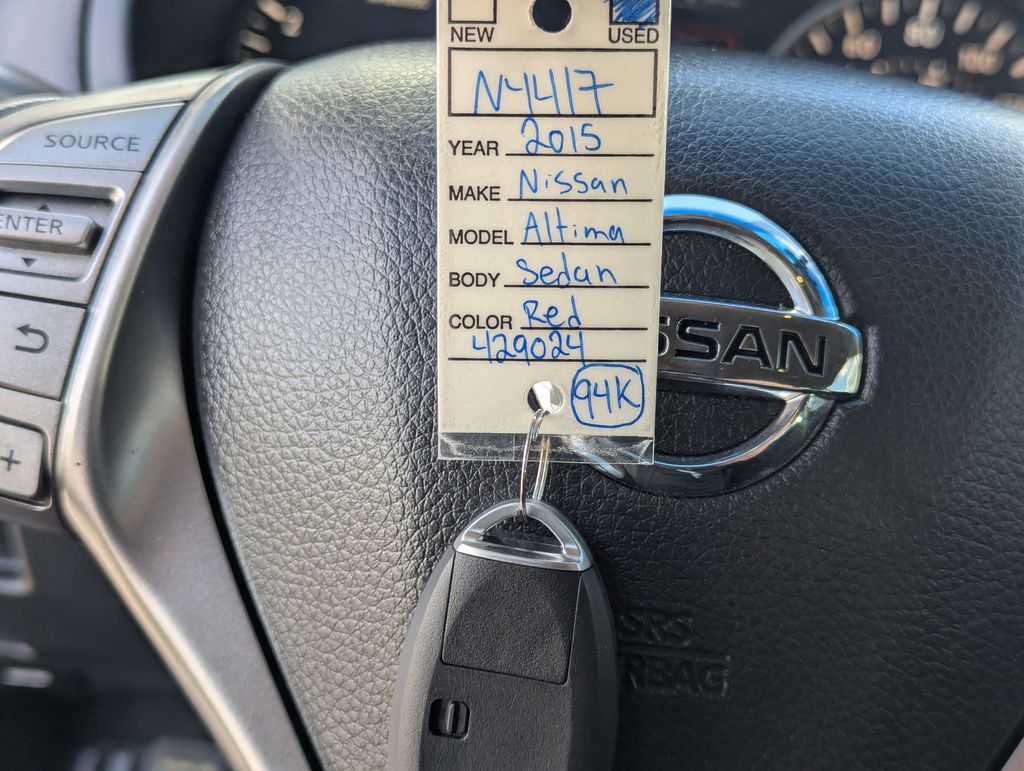 NEW USED
N4417
YEAR 2015
MAKE Nissan
MODEL Altima
BODY Sedan
COLOR Red
429024
94K
SOURCE
ENTER
+
SSAN
SRS
RBAG
80
100